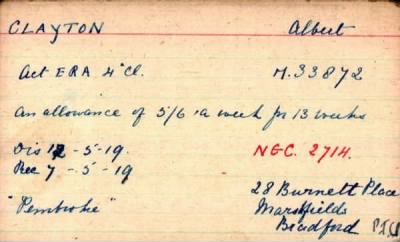 CLAYTON Albert
Act ERA 4" Cl. M.33872
An allowance of 5/6 a week for 13 weeks
Dis 12-5-19. NGC. 2714.
Rec 7-5-19
28 Burnett Place
"Pembroke" Marshfields
Bradford